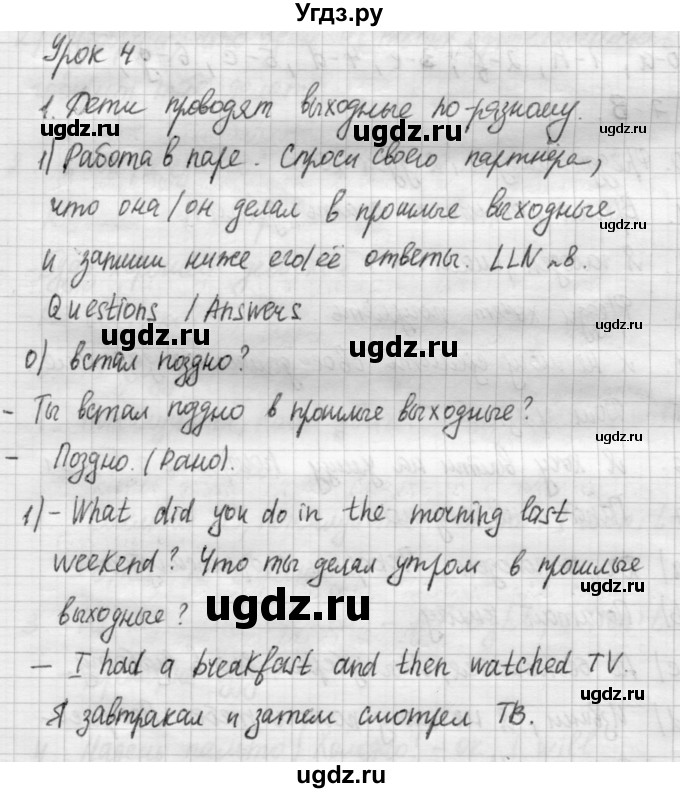 Угдз.ру
Урок 4.
1. Дети проводят выходные по-разному.
1) Работа в паре. Спроси своего партнёра,
что она/он делал в прошлые выходные
и запиши ниже его/её ответы. LLN~8.
Questions / Answers
0) встал поздно?
- Ты встал поздно в прошлые выходные?
- Поздно. (Рано).
1) - What did you do in the morning last
weekend? Что ты делал утром в прошлые
выходные?
- I had a breakfast and then watched TV.
Я завтракал и затем смотрел ТВ.
ugdz.ru